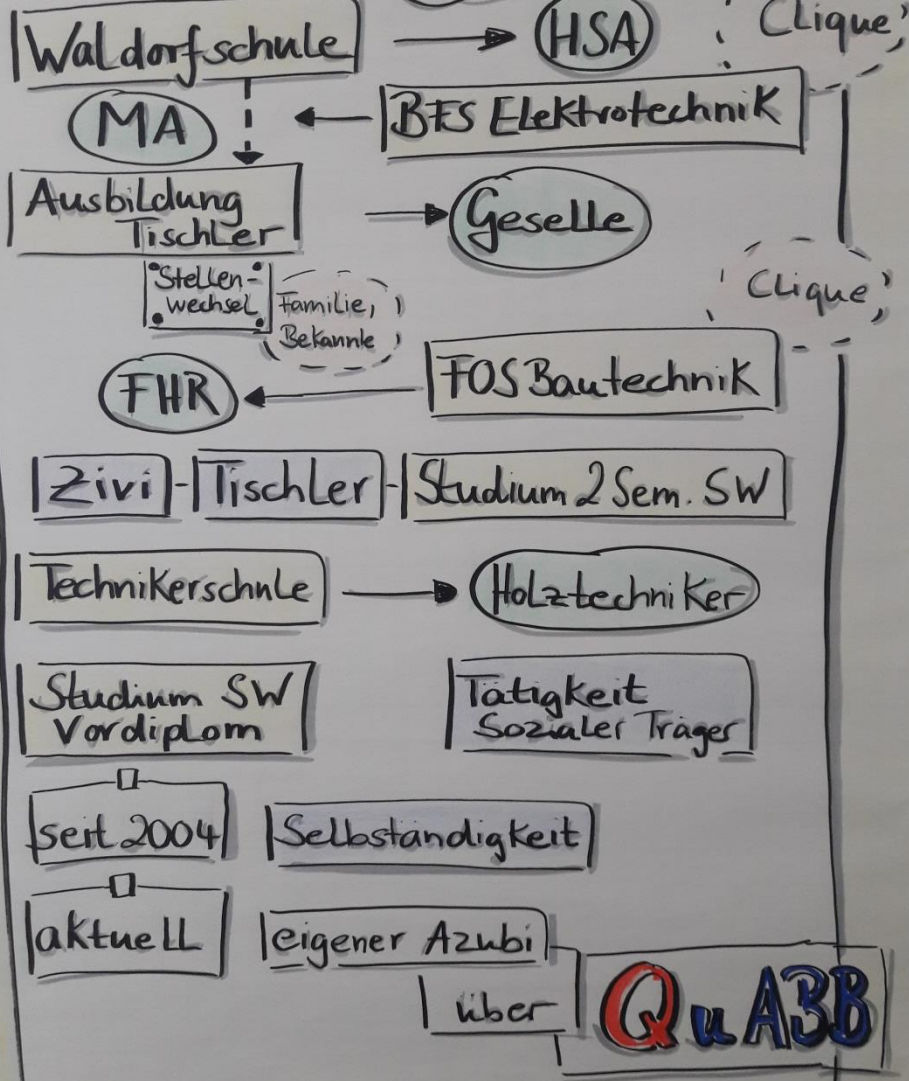 Waldorfschule
HSA
Clique,
MA
BFS Elektrotechnik
Ausbildung
Tischler
Geselle
Stellen-
wechsel
Familie,
Bekannte
Clique,
FHR
FOS Bautechnik
Zivi - Tischler - Studium 2 Sem. SW
Technikerschule
Holztechniker
Studium SW
Vordiplom
Tätigkeit
Sozialer Träger
seit 2004
Selbständigkeit
aktuell
eigener Azubi
über
QuABB